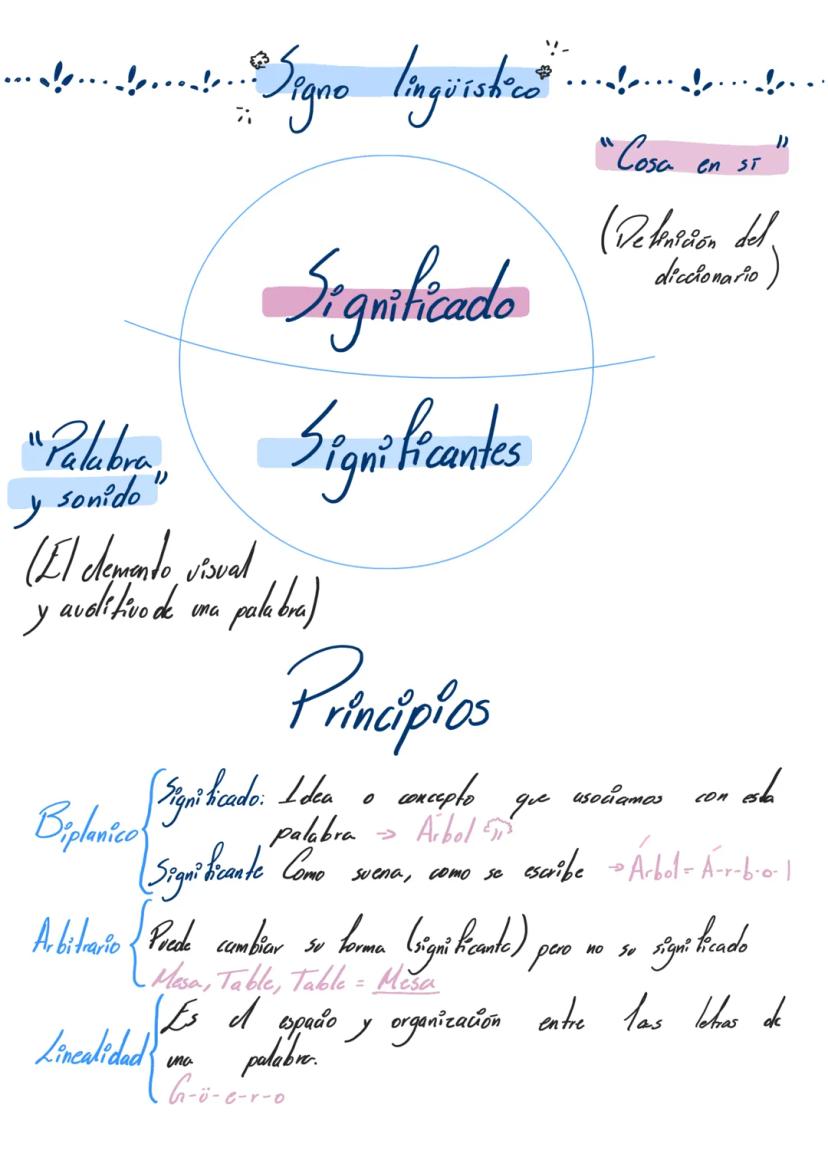 Signo lingüístico
"Cosa en sí"
(Definición del
diccionario)
Significado
Significantes
"Palabra
y sonido"
(El elemento visual
y auditivo de una palabra)
Principios
Biplanico
Significado: Idea o concepto que asociamos con esta
palabra → Árbol
Significante Como suena, como se escribe → Árbol = Á-r-b-o-l
Arbitrario
Puede cambiar su forma (significante) pero no su significado
Mesa, Table, Table = Mesa
Linealidad
Es el espacio y organización entre las letras de
una palabra.
G-ü-e-r-o